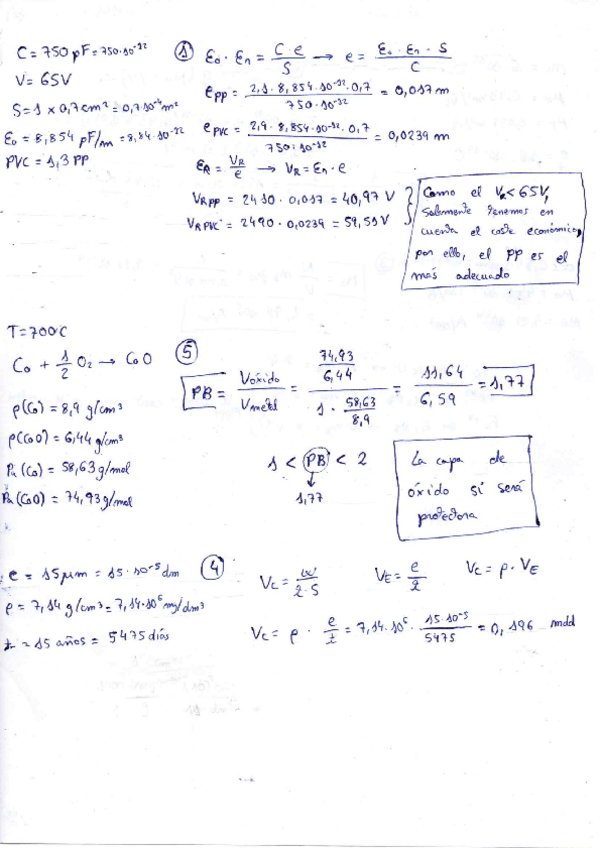 C = 750 pF = 750·10⁻¹²
V = 65V
S = 1 x 0,7 cm² = 0,7·10⁻⁴ m²
ε₀ = 8,854 pF/m = 8,84·10⁻¹²
PVC = 1,3 PP
① ε₀ · εₙ = C·e / S → e = ε₀·εₙ·S / C
e PP = 2,1 · 8,854·10⁻¹²·0,7 / 750·10⁻¹² = 0,017 m
e PVC = 2,9 · 8,854·10⁻¹²·0,7 / 750·10⁻¹² = 0,0239 m
ε_R = V_R / e → V_R = εₙ · e
V_R PP = 2410 · 0,017 = 40,97 V
V_R PVC = 2490 · 0,0239 = 59,51 V
Como el V_R < 65V,
solamente tenemos en
cuenta el coste económico,
por ello, el PP es el
más adecuado
T = 700ºC
Co + 1/2 O₂ → CoO
ρ(Co) = 8,9 g/cm³
ρ(CoO) = 6,44 g/cm³
Pa (Co) = 58,63 g/mol
Pa (CoO) = 74,93 g/mol
⑤
PB = Vóxido / Vmetal = 74,93 / 6,44 / 1 · 58,63 / 8,9 = 11,64 / 6,59 = 1,77
1 < PB < 2
↓
1,77
La capa de
óxido si será
protectora
e = 15 μm = 15·10⁻⁵ dm
ρ = 7,14 g/cm³ = 7,14·10⁶ mg/dm³
t = 15 años = 5475 días
④ Vc = w / 2·S V_E = e / t Vc = ρ · V_E
Vc = ρ · e / t = 7,14·10⁶ · 15·10⁻⁵ / 5475 = 0,196 mdd